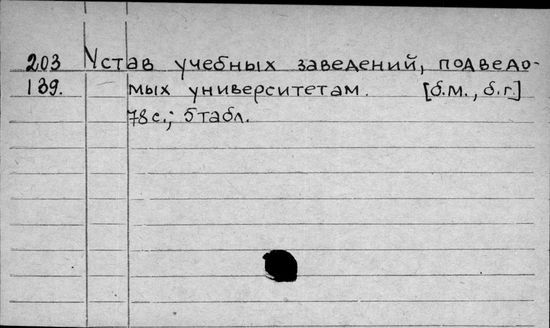 203 Устав учебных заведений, подведо-
139. мых университетам. [б.м., б.г.]
78 с.; 5 табл.